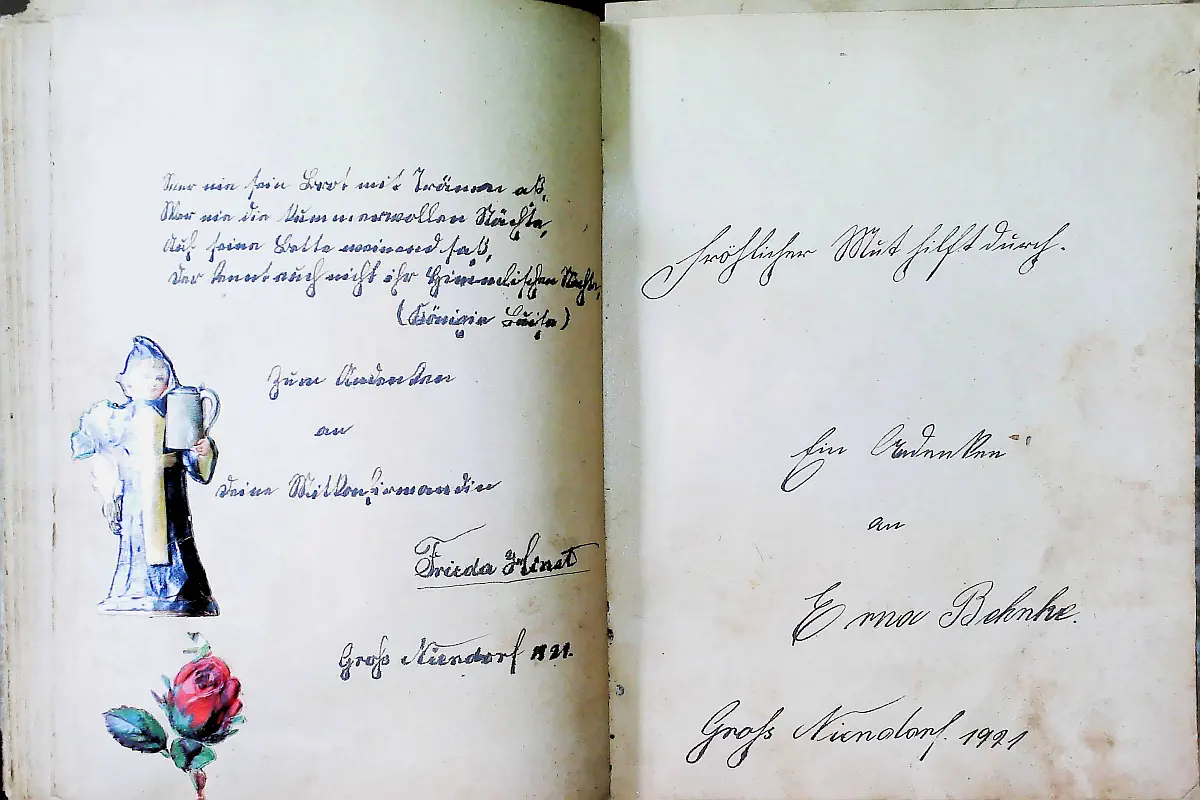 Wer nie sein Brot mit Tränen aß,
Wer nie die kummervollen Nächte,
Auf seine Bette weinend saß,
Der kennt auch nicht ihr Himmlischen Mächte,
(Königin Luise)
Zum Andenken
an
Deine Mitkonfirmandin
Frieda
Groß Niendorf 1921.
Fröhlicher Mut hilft durch.
Ein Andenken
an
Erna Behnke.
Groß Niendorf. 1921